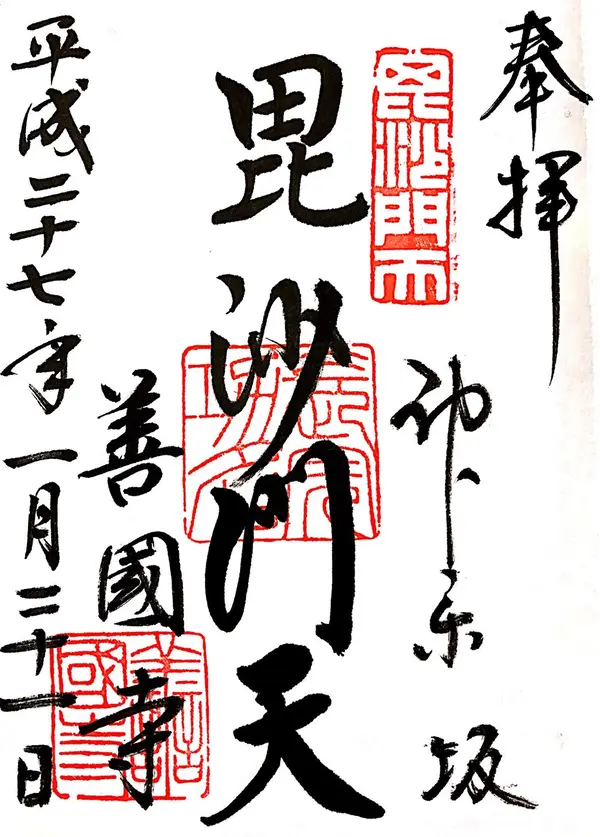 奉拝
神楽坂
毘沙門天
善國寺
平成二十七年一月二十一日
毘沙門天
善國寺